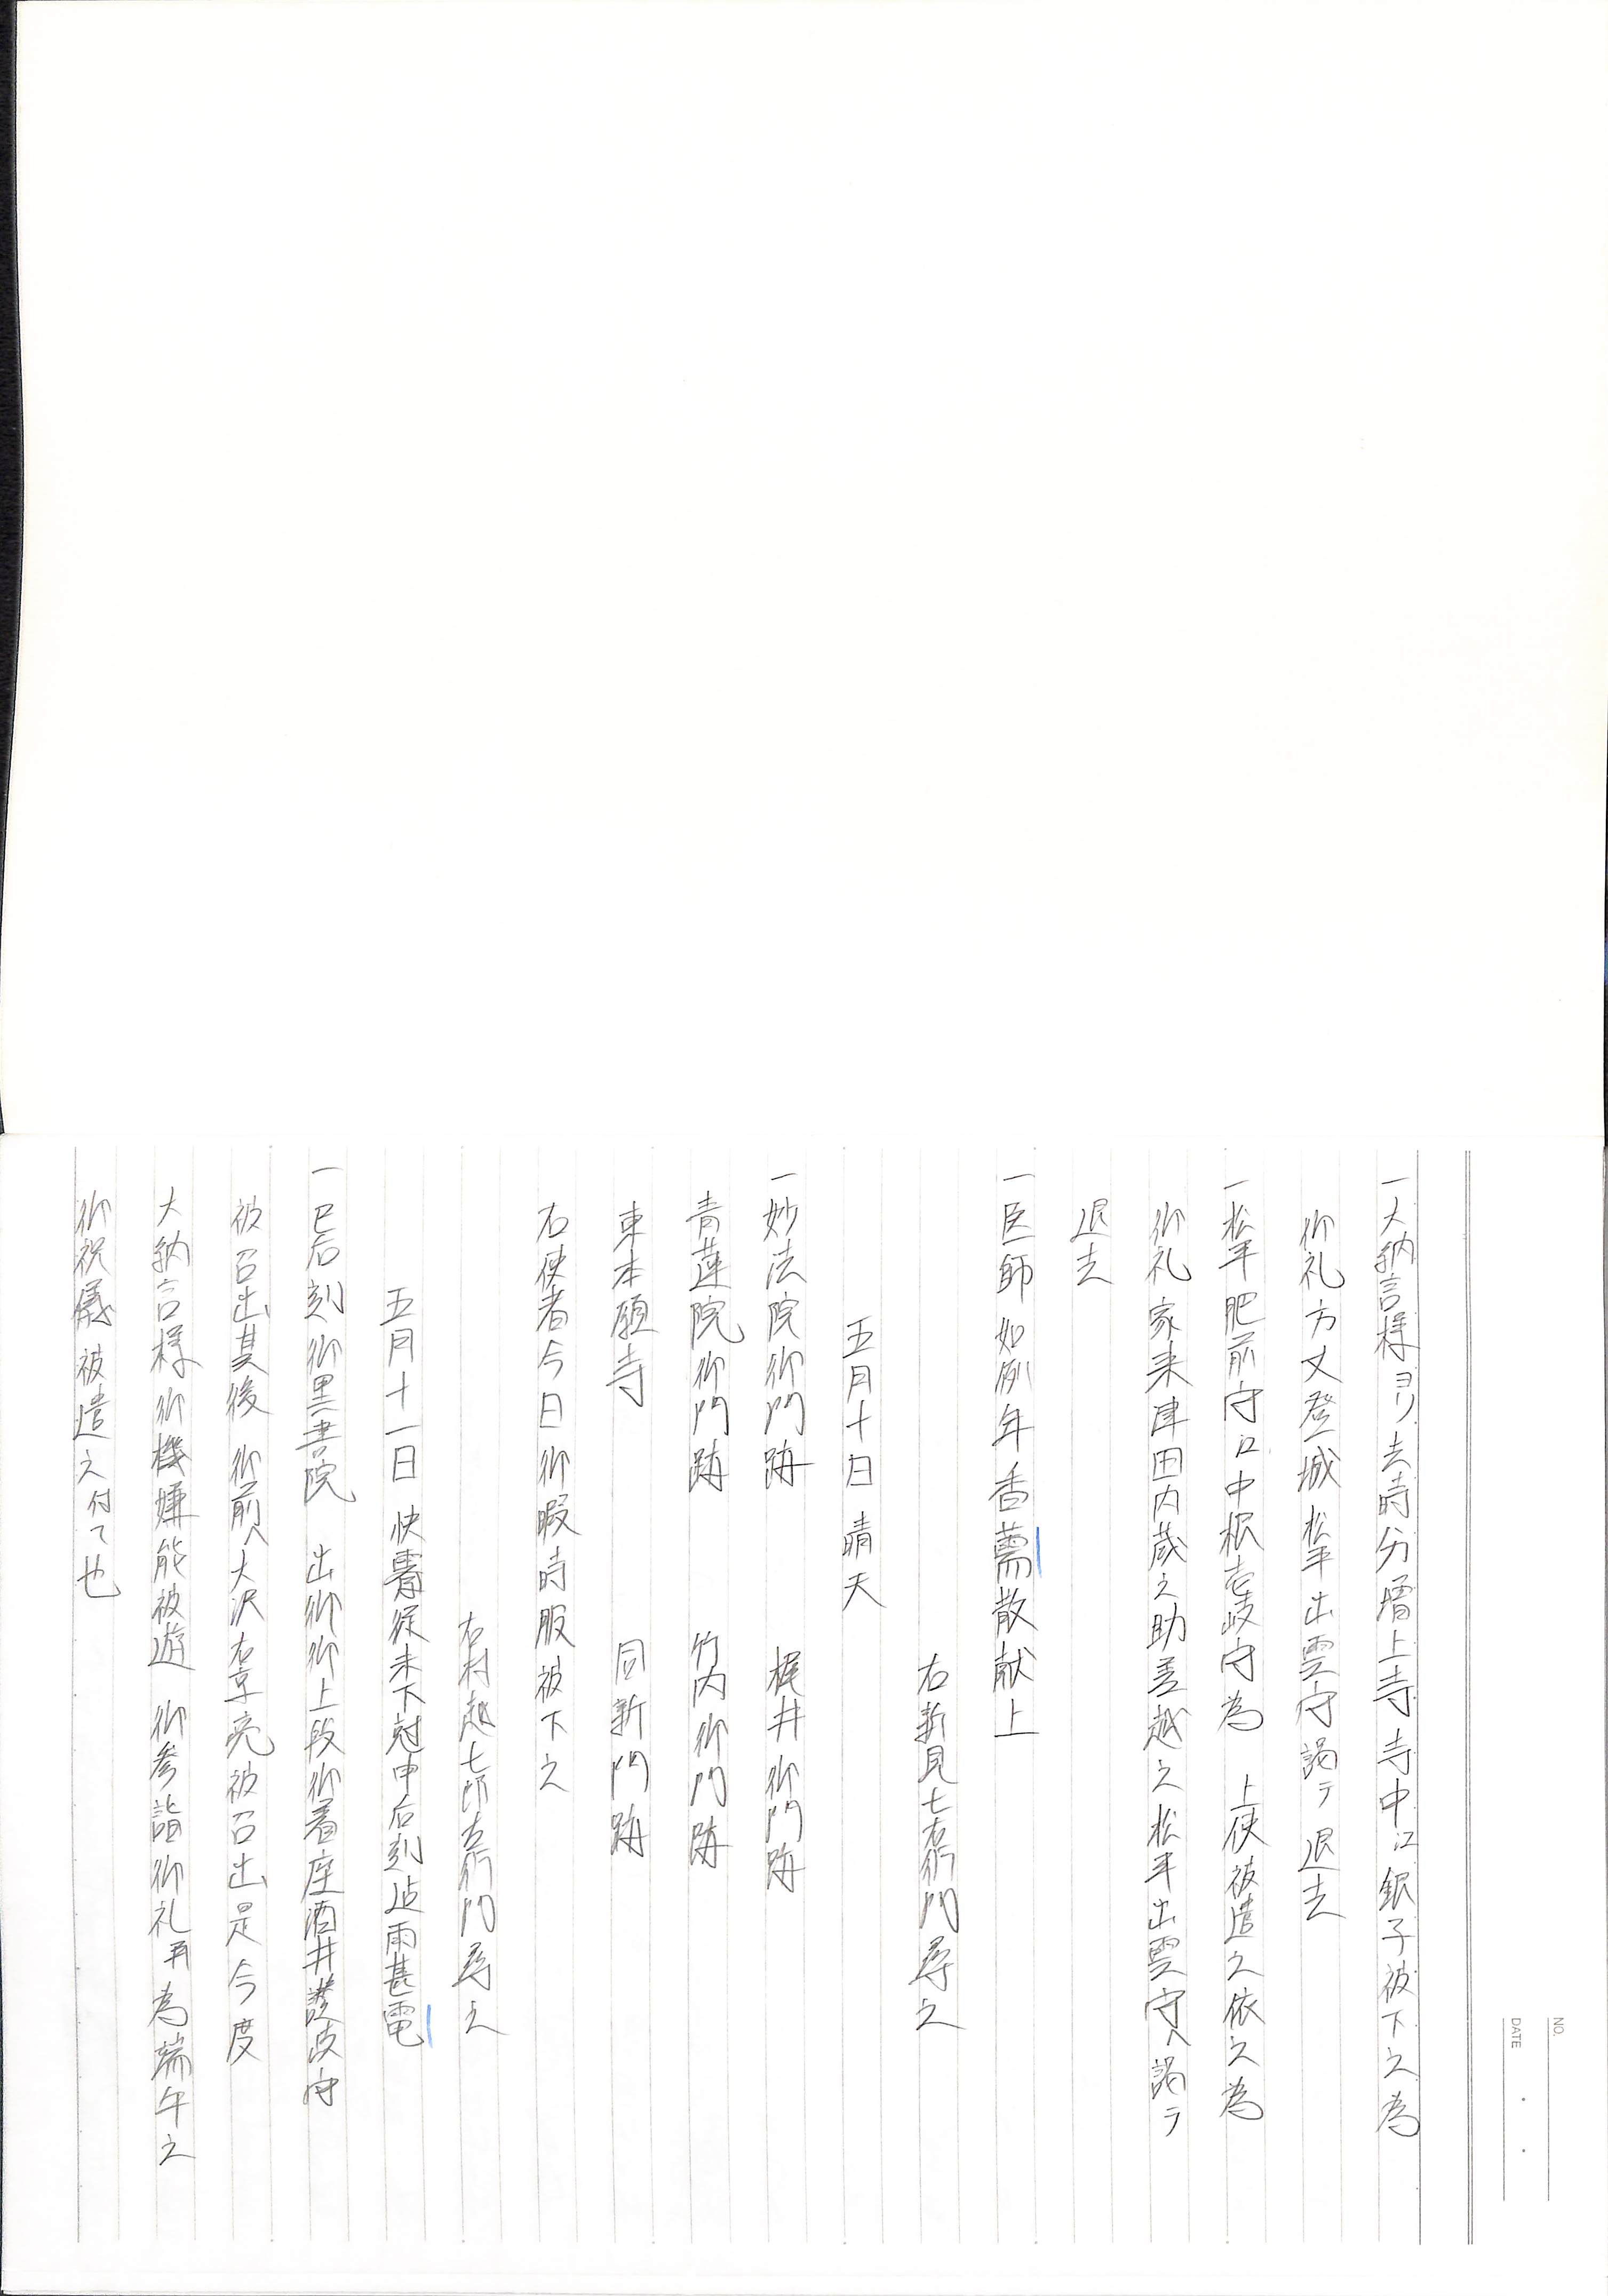 NO.
DATE
一大納言様ヨリ去時分増上寺寺中江銀子被下之為
御礼方丈登城松平出雲守謁テ退去
一松平肥前守江中根壱岐守為 上使被遣之依之為
御礼家来津田内蔵之助差越之松平出雲守へ謁テ
退去
一医師如例年香薷散献上
右新見七右衛門尋之
五月十日 晴天
一妙法院御門跡 梶井御門跡
青蓮院御門跡 竹内御門跡
東本願寺 同新門跡
右使者今日御暇時服被下之
右村越七郎左衛門尋之
五月十一日 快霽従未下尅申后刻迄雨甚電
一巳后刻御黒書院 出御御上段御着座酒井讃岐守
被召出其後 御前へ大沢右京亮被召出是今度
大納言様御機嫌能被遊 御参詣御礼再為端午之
御祝儀被遣之付て也